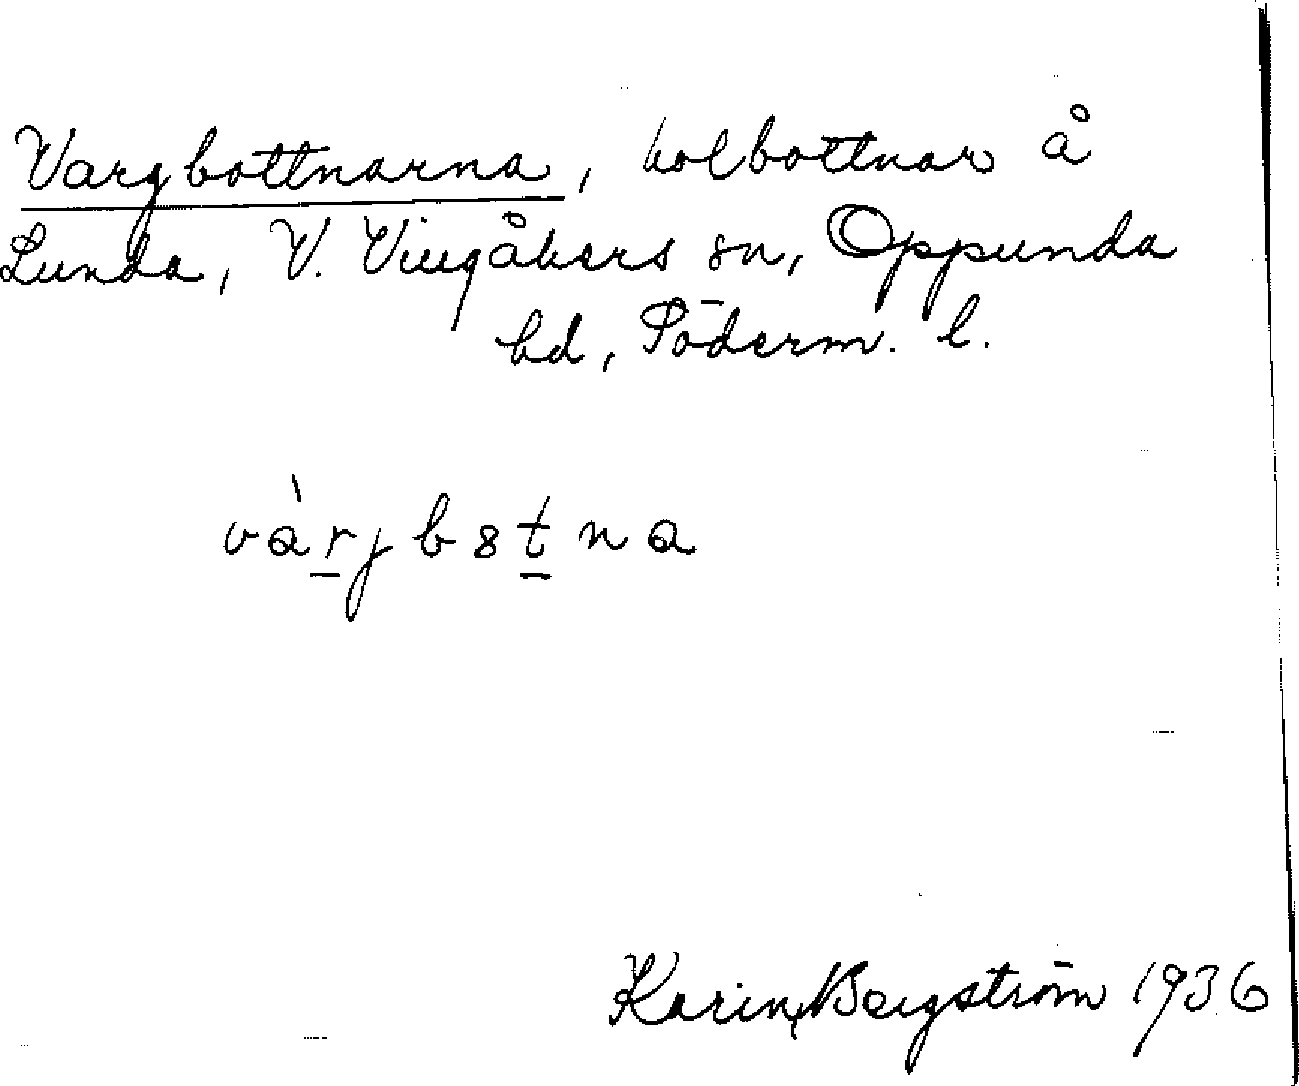 Vargbottnarna, kolbottnar å
Lunda, V. Vingåkers sn, Oppunda
hd, Söderm. l.
vàrjb8tna
Karin Bergström 1936